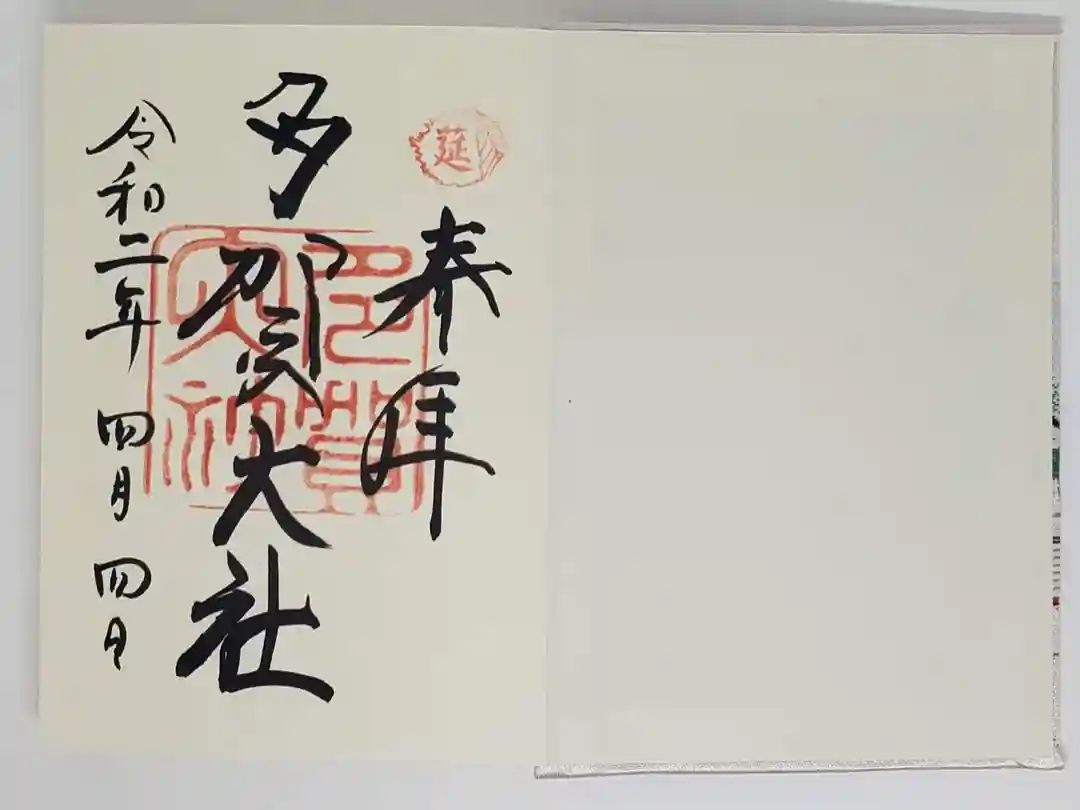 莚
奉拝
多賀大社
令和二年 四月 四日